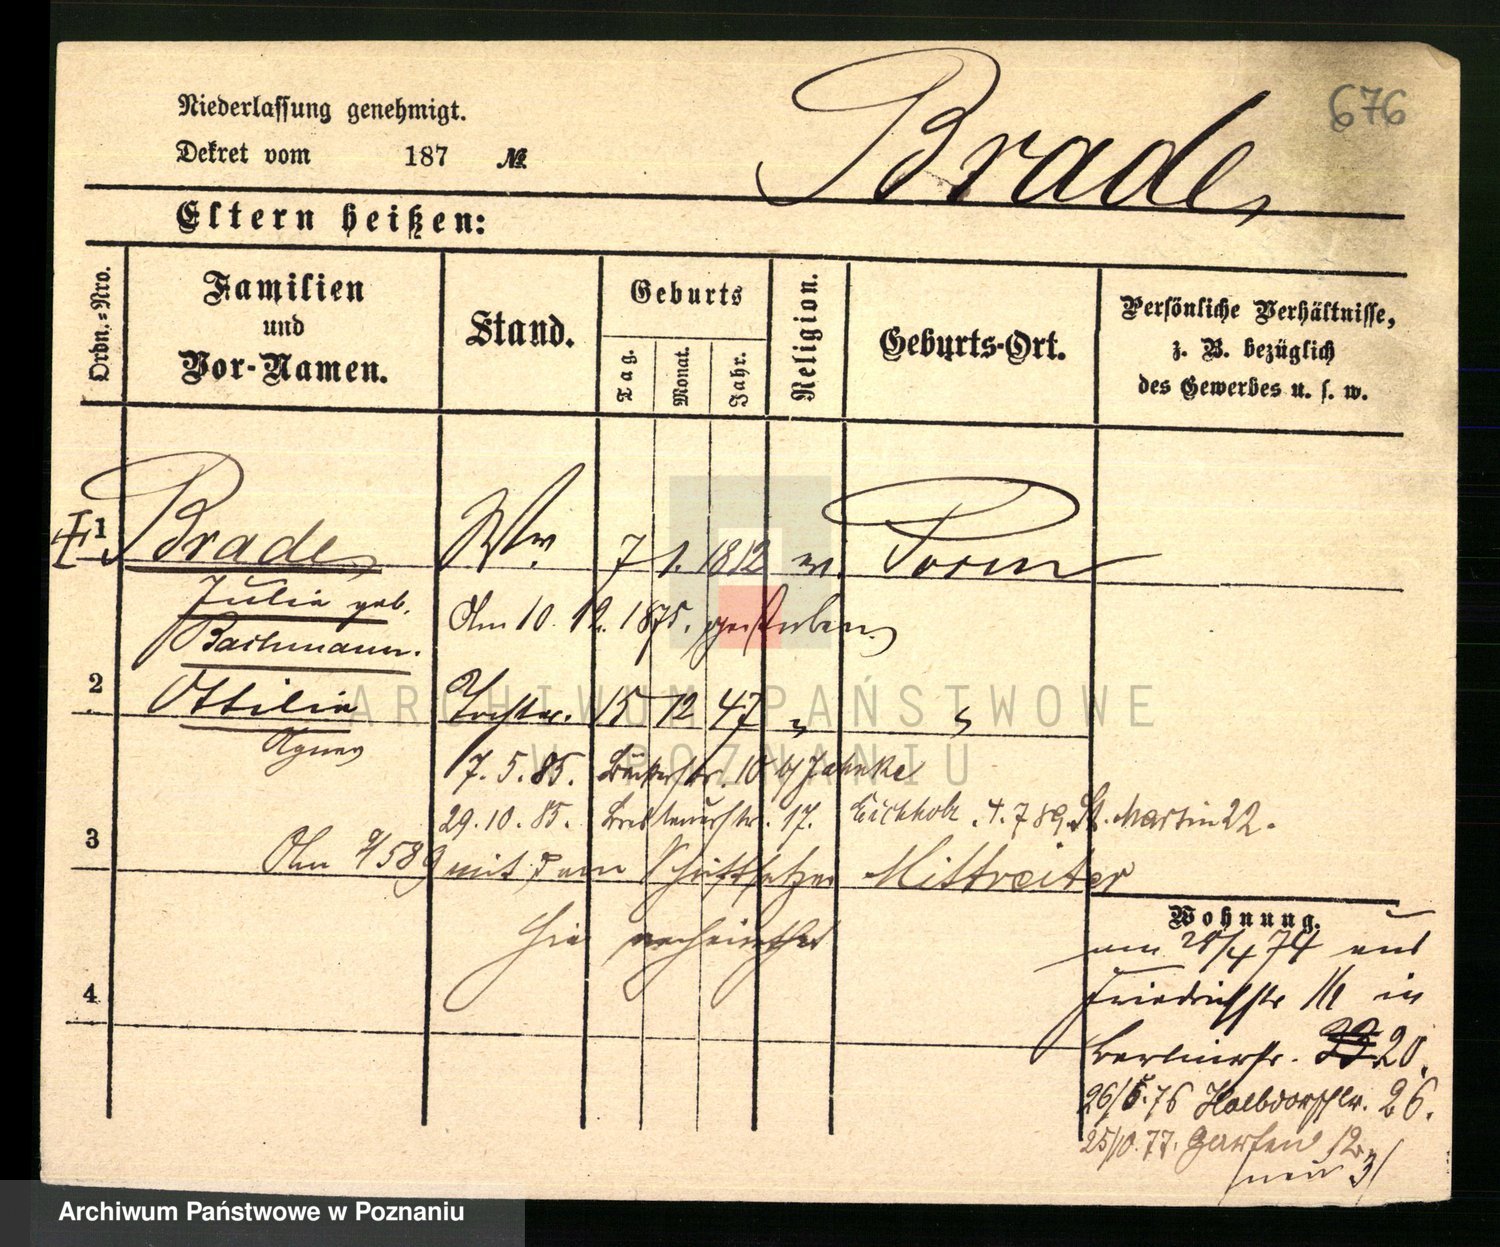 676
Niederlassung genehmigt.
Brade,
Dekret vom 187 №
Eltern heißen:
Ordn.-Nro.
Familien und Vor-Namen.
Stand.
Geburts
Tag.
Monat.
Jahr.
Religion.
Geburts-Ort.
Persönliche Verhältnisse,
z. B. bezüglich
des Gewerbes u. s. w.
1 Brade, Ww. 7 1. 1812 ev. Posen
Julie geb. Am 10. 12. 1875. gestorben.
Bachmann.
2 Ottilie Tochter. 15 12 47 " "
Agnes
7. 5. 85. Bäckerstr. 10 b/ Jahnke
29. 10. 85. Breslauerstr. 17. Eichholz. 4. 7 89. St. Martin 22.
3 Am mit dem Schriftsetzer Mittreiter
hier verheirathet
Wohnung.
am /4 74 aus
Friedrichstr in
4
Berlinerstr. 20.
26/5. 76 Halbdorfstr. 26.
25/10. 77. Garten 12
neu 3/
ARCHIWUM PAŃSTWOWE
W POZNANIU
Archiwum Państwowe w Poznaniu